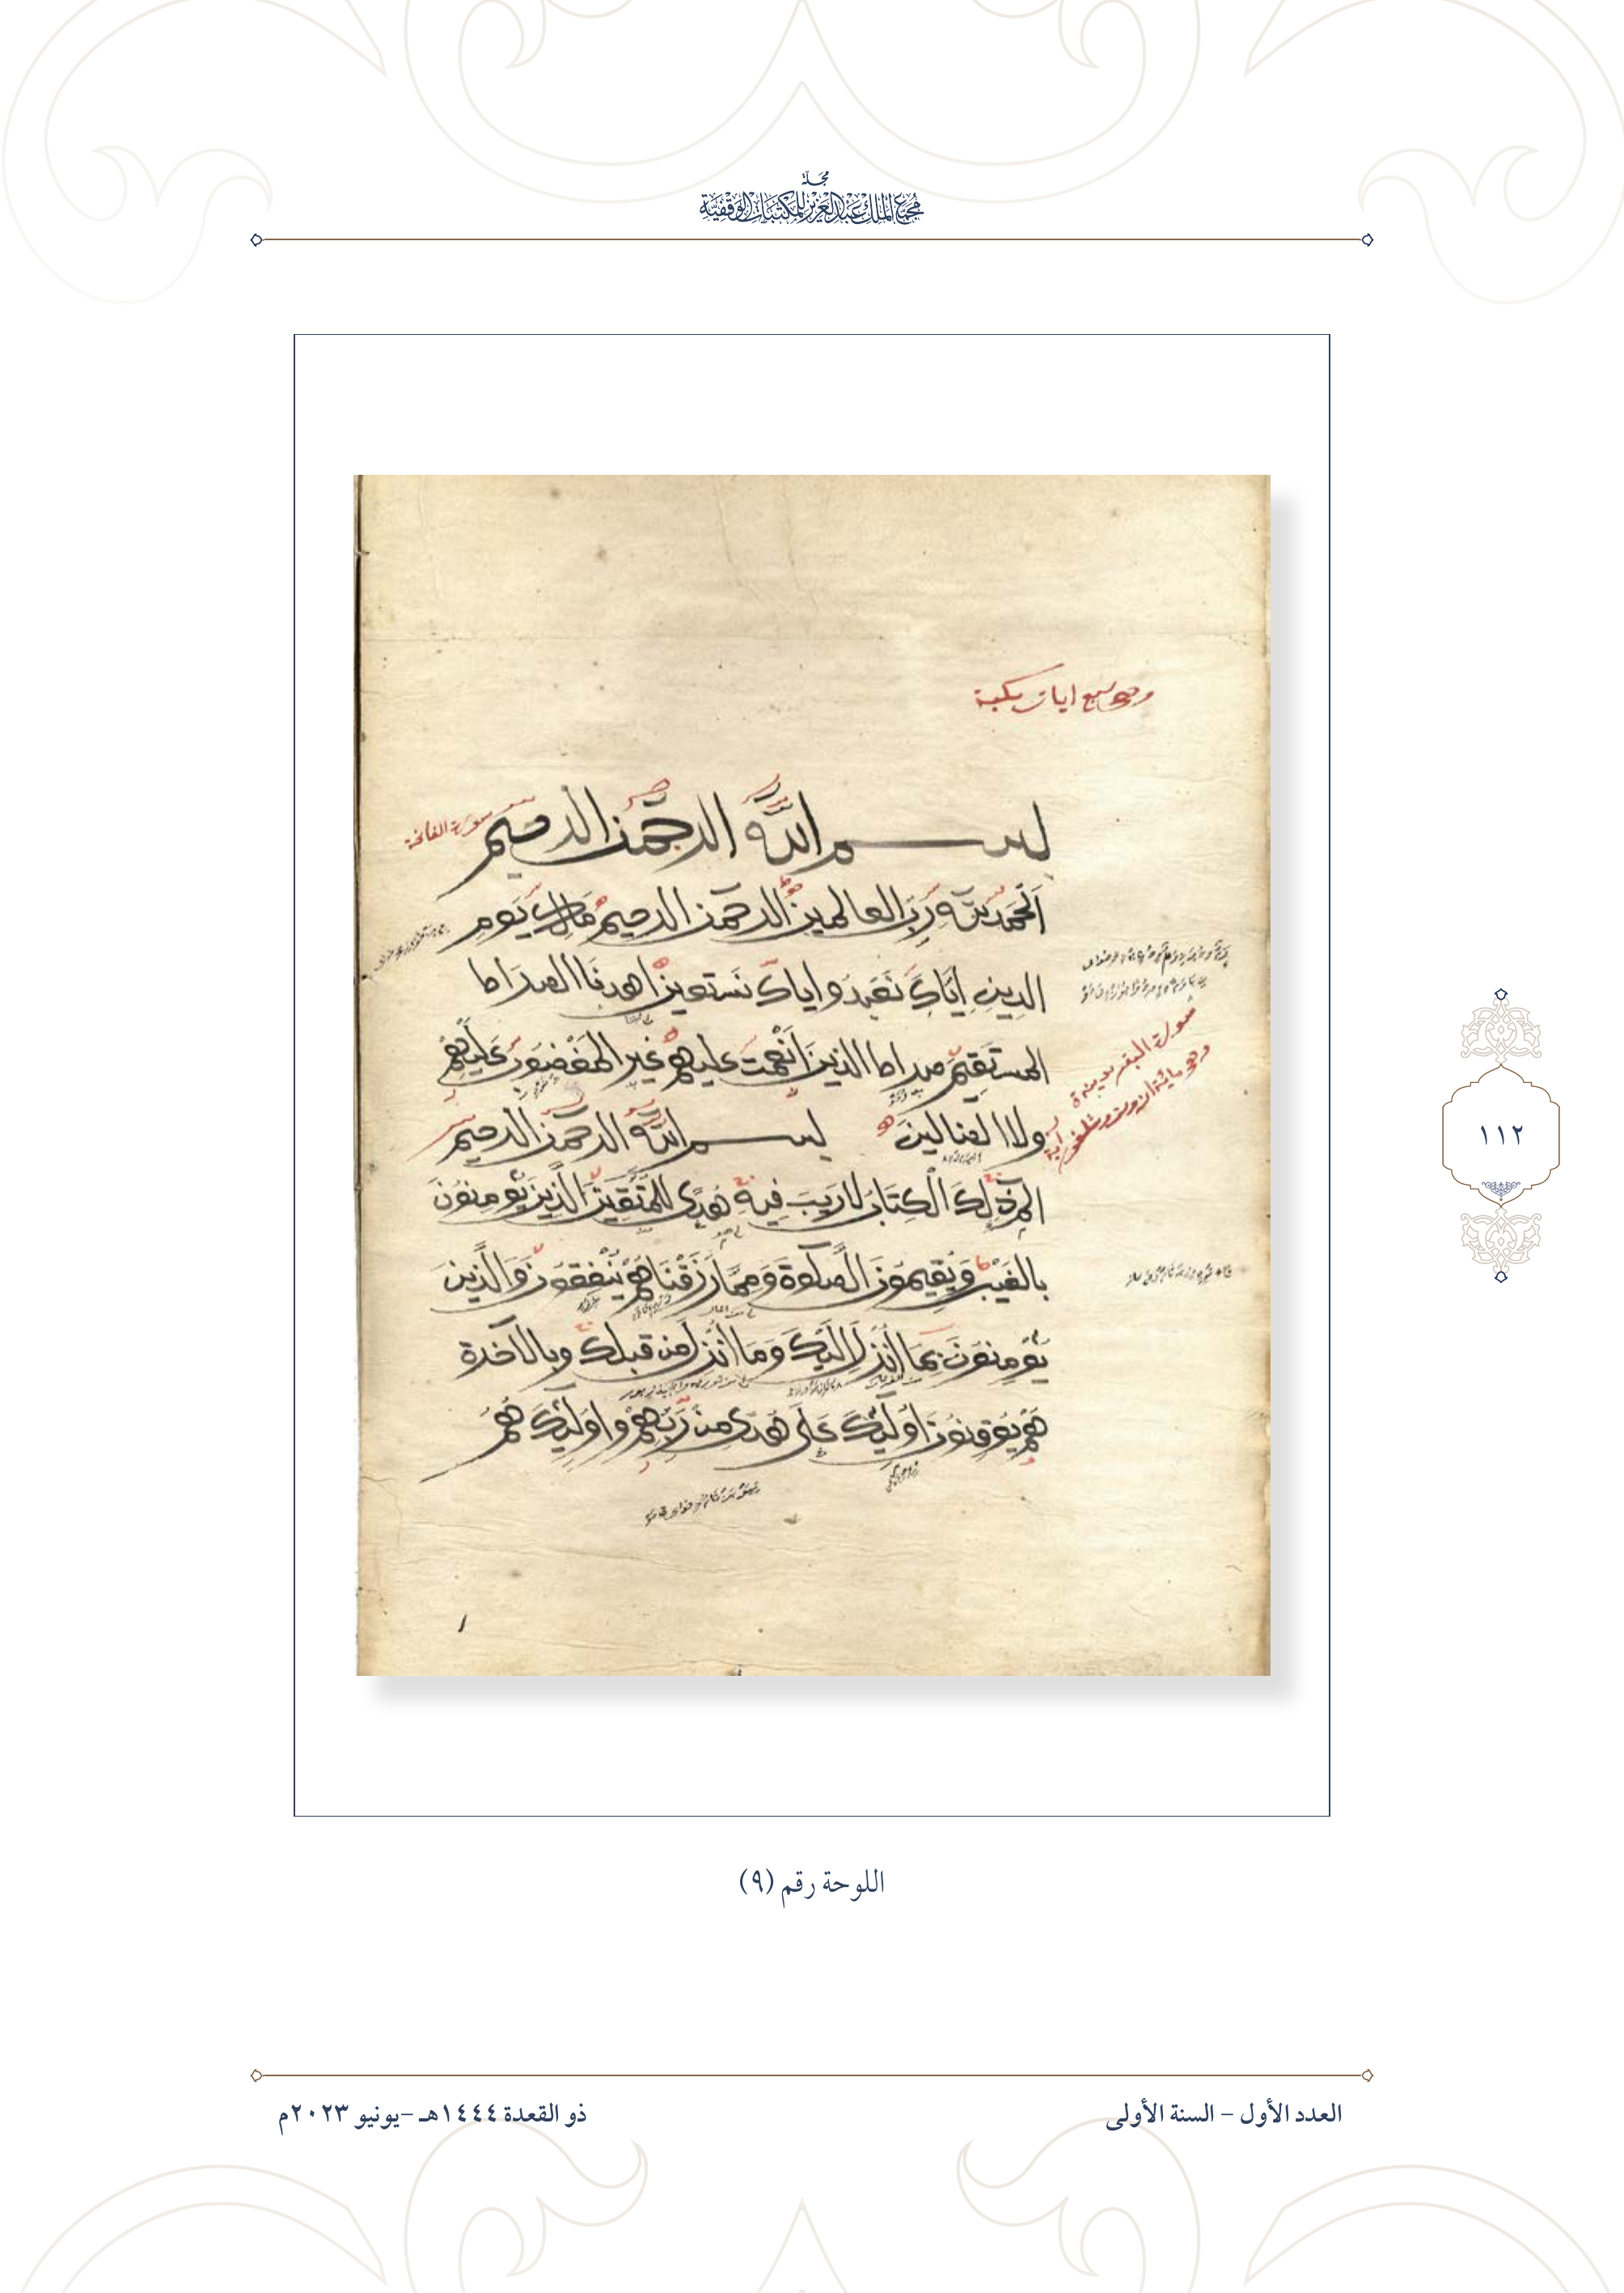 مجلة
مجمع الملك عبدالعزيز للمكتبات الوقفية
وهي سبع ايات مكية
سورة الفاتحة
بسم الله الرحمن الرحيم
اَلْحَمْد لله رَبِّ العالمين الرحمن الرحيم مَالك يَوم
الدين اِيَّاكَ نَعْبدُ و اياكَ نَستعين اهدنَا الصرَاط
المستَقِيمَ صراط الذينَ اَنْعَمتَ عليهمْ غيرِ المَغْضُوبِ عَلَيْهِمْ
ولا الضالينَ
سورة البقرة مدينة
وهي مائتان وست وثلثون اية
بسم الله الرحمن الرحيم
الم ذٰلِكَ الْكِتَابُ لا رَيبَ فِيهِ هُدًى لِلْمُتَّقِينَ الَّذِينَ يُؤمِنُونَ
بِالغَيْبِ وَيُقِيمُونَ الصَّلٰوةَ وَمِمَّا رَزَقْنَاهُمْ يُنْفِقُونَ وَالَّذِينَ
يُؤمِنُونَ بِمَا اُنْزِلَ اِلَيْكَ وَمَا اُنْزِلَ مِن قبلك وبالآخرة
هُمْ يُوقِنُونَ اُولٰئِكَ عَلٰى هُدًى مِنْ رَبِّهِمْ و اُولٰئِكَ هُمُ
١
١١٢
اللوحة رقم (٩)
العدد الأول – السنة الأولى
ذو القعدة ١٤٤٤هـ –يونيو ٢٠٢٣م